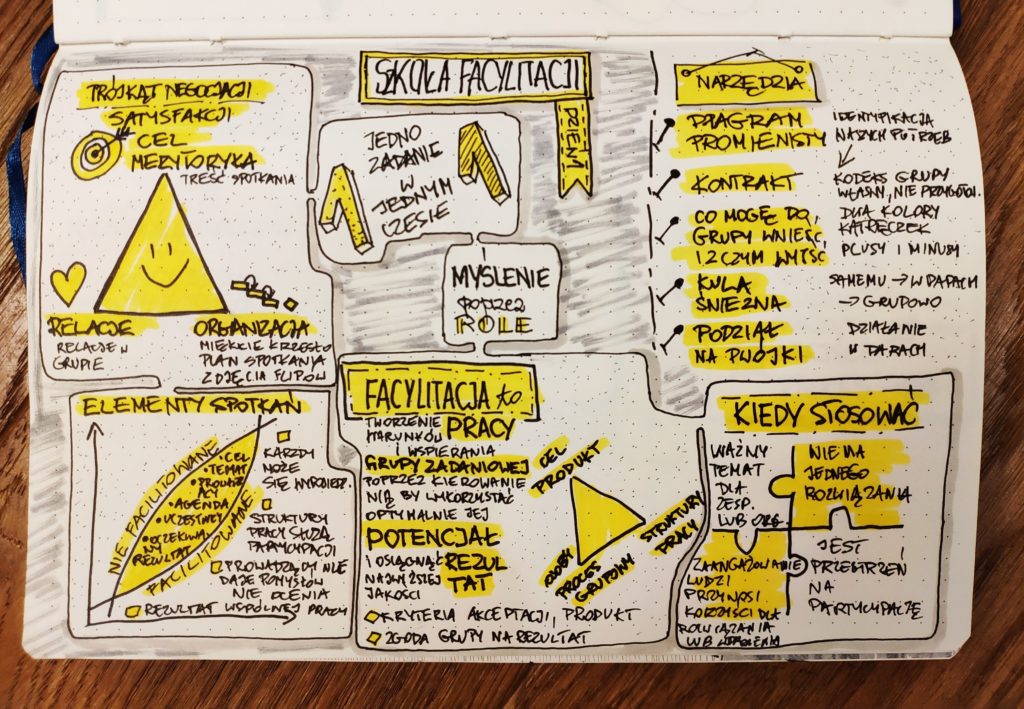 SZKOŁA FACYLITACJI
DZIEŃ 1
TRÓJKĄT NEGOCJACJI
SATYSFAKCJI
CEL
MERYTORYKA
TREŚĆ SPOTKANIA
RELACJE
RELACJE W
GRUPIE
ORGANIZACJA
MIĘKKIE KRZESŁO
PLAN SPOTKANIA
ZDJĘCIA FLIPÓW
JEDNO
ZADANIE
W
JEDNYM
CZESIE
1
1
MYŚLENIE
POPRZEZ
ROLE
NARZĘDZIA
DIAGRAM
PROMIENISTY
IDENTYFIKACJA
NASZYCH POTRZEB
KONTRAKT
KODEKS GRUPY
WŁASNY, NIE PRZYGOTOW.
CO MOGĘ DO
GRUPY WNIEŚĆ,
I Z CZYM WYJŚĆ
DWA KOLORY
KARTECZEK
PLUSY I MINUSY
KULA
ŚNIEŻNA
SAMEMU → W PARACH
→ GRUPOWO
PODZIAŁ
NA DWÓJKI
DZIAŁANIE
W PARACH
ELEMENTY SPOTKAŃ
NIE FACILITOWANE
• CEL
• TEMAT
• PROWADZ
ĄCY
• AGENDA
• UCZESTNICY
• OCZEKIWA
NY
REZULTAT
FACILITOWANE
KAŻDY
MOŻE
SIĘ WYPOWIEDZ.
STRUKTURY
PRACY SŁUŻĄ
PARTYCYPACJI
PROWADZĄCY NIE
DAJE POMYSŁÓW
NIE OCENIA
REZULTAT WSPÓLNEJ PRACY
FACYLITACJA to
TWORZENIE
WARUNKÓW PRACY
I WSPIERANIA
GRUPY ZADANIOWEJ
POPRZEZ KIEROWANIE
NIĄ BY WYKORZYSTAĆ
OPTYMALNIE JEJ
POTENCJAŁ
I OSIĄGNĄĆ REZUL
NAJWYŻSZEJ TAT
JAKOŚCI
CEL
PRODUKT
STRUKTURY
PRACY
OSOBY
PROCES
GRUPOWY
KRYTERIA AKCEPTACJI, PRODUKT
ZGODA GRUPY NA REZULTAT
KIEDY STOSOWAĆ
WAŻNY
TEMAT
DLA
ZESP.
LUB ORG.
NIE MA
JEDNEGO
ROZWIĄZANIA
ZAANGAŻOWANIE
LUDZI
PRZYNOSI
KORZYŚCI DLA
ROZWIĄZANIA
LUB
JEST
PRZESTRZEŃ
NA
PARTYCYPACJĘ